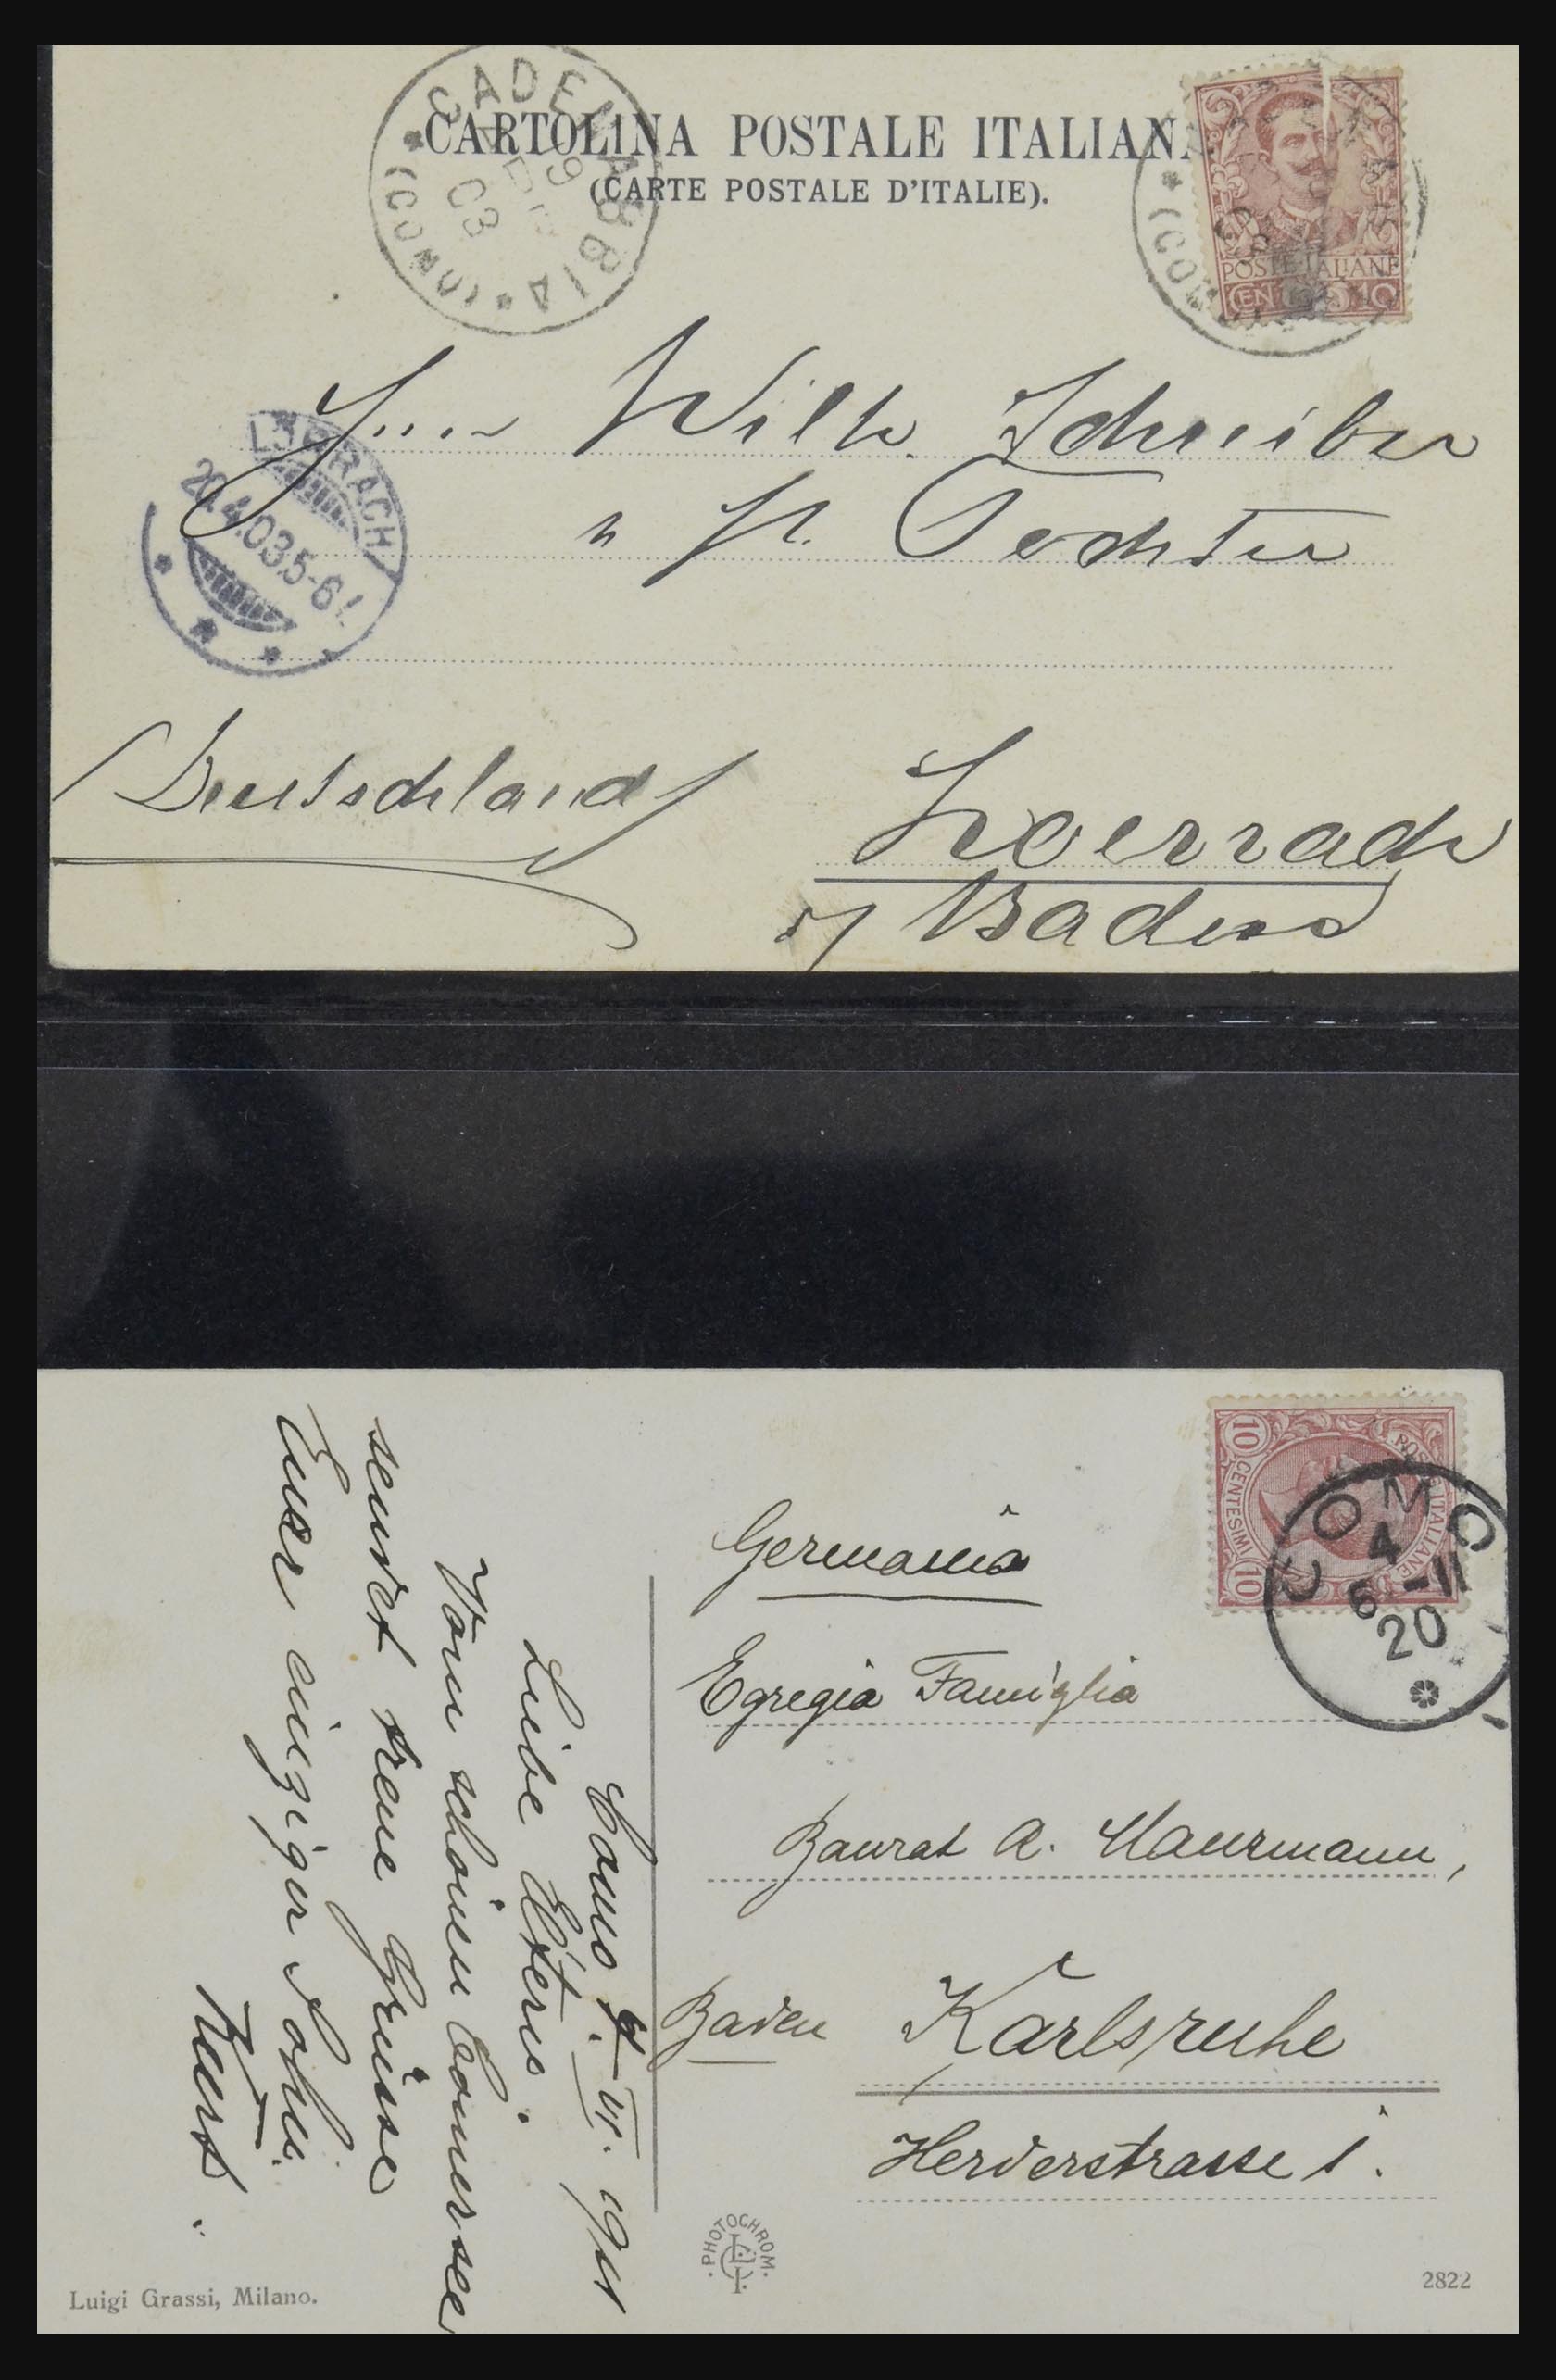 CARTOLINA POSTALE ITALIANA
(CARTE POSTALE D'ITALIE).
CADENABBIA
(COMO)
19
03
POSTE ITALIANE
CEN. 10
LÖRRACH
20.4.03.5-6
Wilh. Schreiber
u Tochter
Deutschland
Loerrach
Baden
10 CENTESIMI 10
POSTE ITALIANE
COMO
4
6 -11
20
Germania
Egregia Famiglia
Baurat A. Maurmann,
Baden Karlsruhe
Herderstrasse 1.
Como 4. VI. 1911
Liebe Eltern.
Vom schönen Comersee
sendet treue Grüsse
Euer einziger Sohn.
Kurt.
PHOTOCHROM.
Luigi Grassi, Milano.
2822